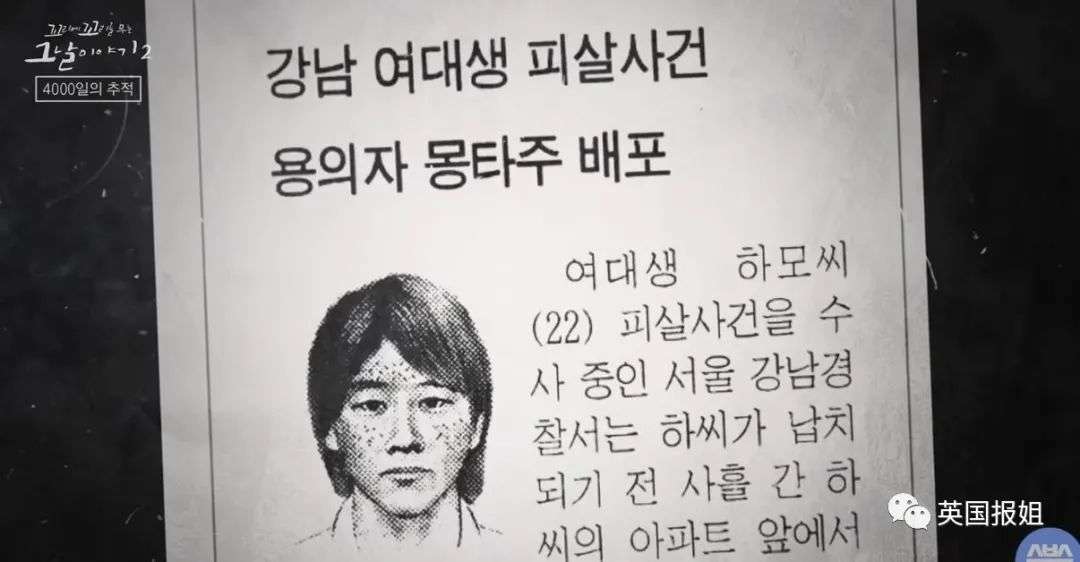 꼬리에 꼬리를 무는
그날 이야기 2
4000일의 추적
강남 여대생 피살사건
용의자 몽타주 배포
여대생 하모씨
(22) 피살사건을 수
사 중인 서울 강남경
찰서는 하씨가 납치
되기 전 사흘 간 하
씨의 아파트 앞에서
英国报姐